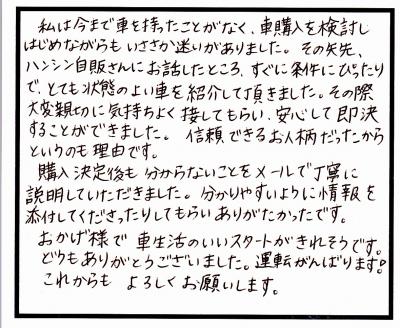 私は今まで車を持ったことがなく、車購入を検討し
はじめながらもいささか迷いがありました。その矢先、
ハンシン自販さんにお話したところ、すぐに条件にぴったり
で、とても状態のよい車を紹介して頂きました。その際
大変親切に気持ちよく接してもらい、安心して即決
することができました。信頼できるお人柄だったから
というのも理由です。
購入決定後も分からないことをメールで丁寧に
説明していただきました。分かりやすいように情報を
添付してくださったりしてもらいありがたかったです。
おかげ様で車生活のいいスタートがきれそうです。
どうもありがとうございました。運転がんばります!
これからも よろしくお願いします。